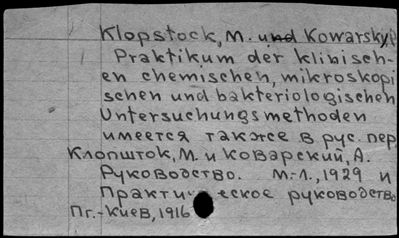 Klopstock, M. und Kowarsky,
Praktikum der klinisch-
en chemischen, mikroskopi
schen und bakteriologischen
Untersuchungsmethoden
имеется также в рус. пер.
Клопшток, М. и Коварский, А.
Руководство. М.-Л., 1929 и
Практическое руководство
Пг.-Киев, 1916